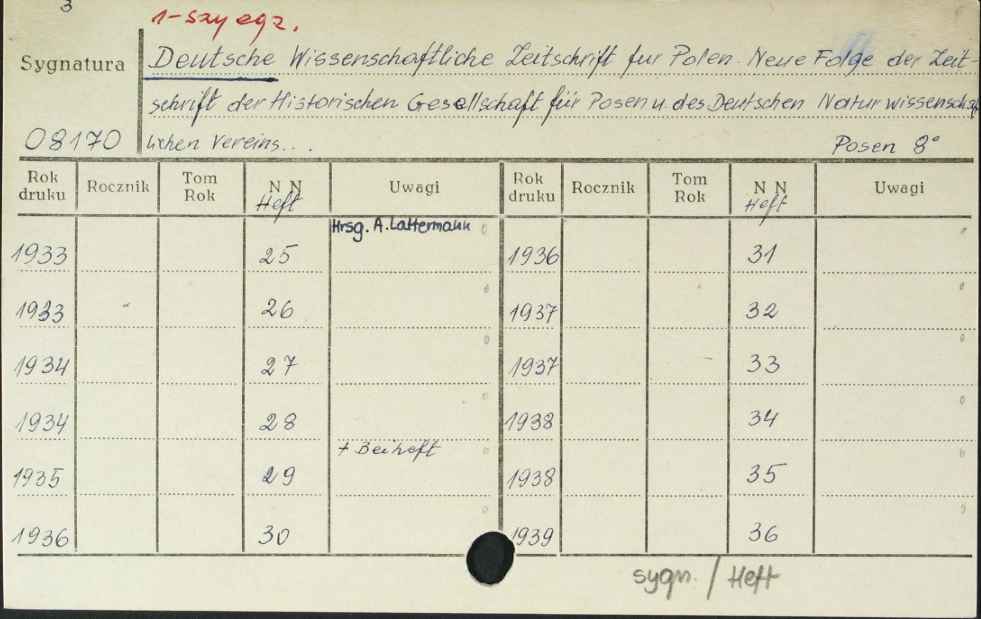 3
1-szy egz.
Sygnatura
Deutsche Wissenschaftliche Zeitschrift fur Polen. Neue Folge der Zeit-
schrift der Historischen Gesellschaft für Posen u. des Deutschen Naturwissenschaft
08170 lichen Vereins... Posen 8°
Rok druku Rocznik Tom Rok N N Heft Uwagi Rok druku Rocznik Tom Rok N N Heft Uwagi
1933 25 Hrsg. A. Lattermann 1936 31
1933 26 1937 32
1934 27 1937 33
1934 28 1938 34
1935 29 + Beiheft 1938 35
1936 30 1939 36
sygn. / Heft